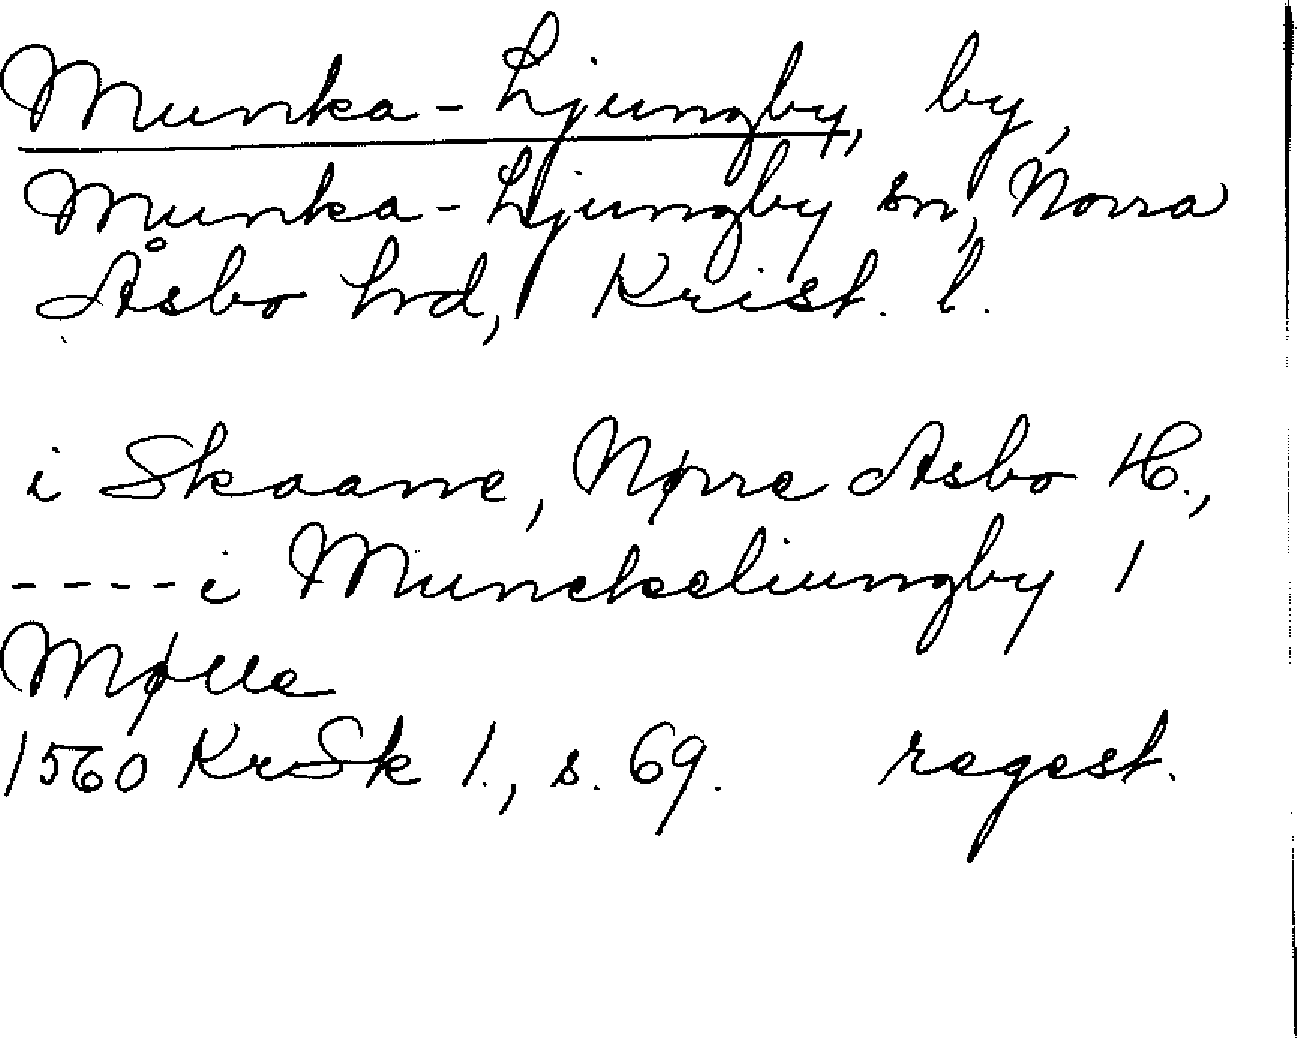 Munka-Ljungby, by,
Munka-Ljungby sn, Norra
Åsbo hrd, Krist. l.
i Skaane, Nørre Asbo H.,
----i Munckeliungby 1
Mølle
1560 KrSk 1., s. 69. regest.